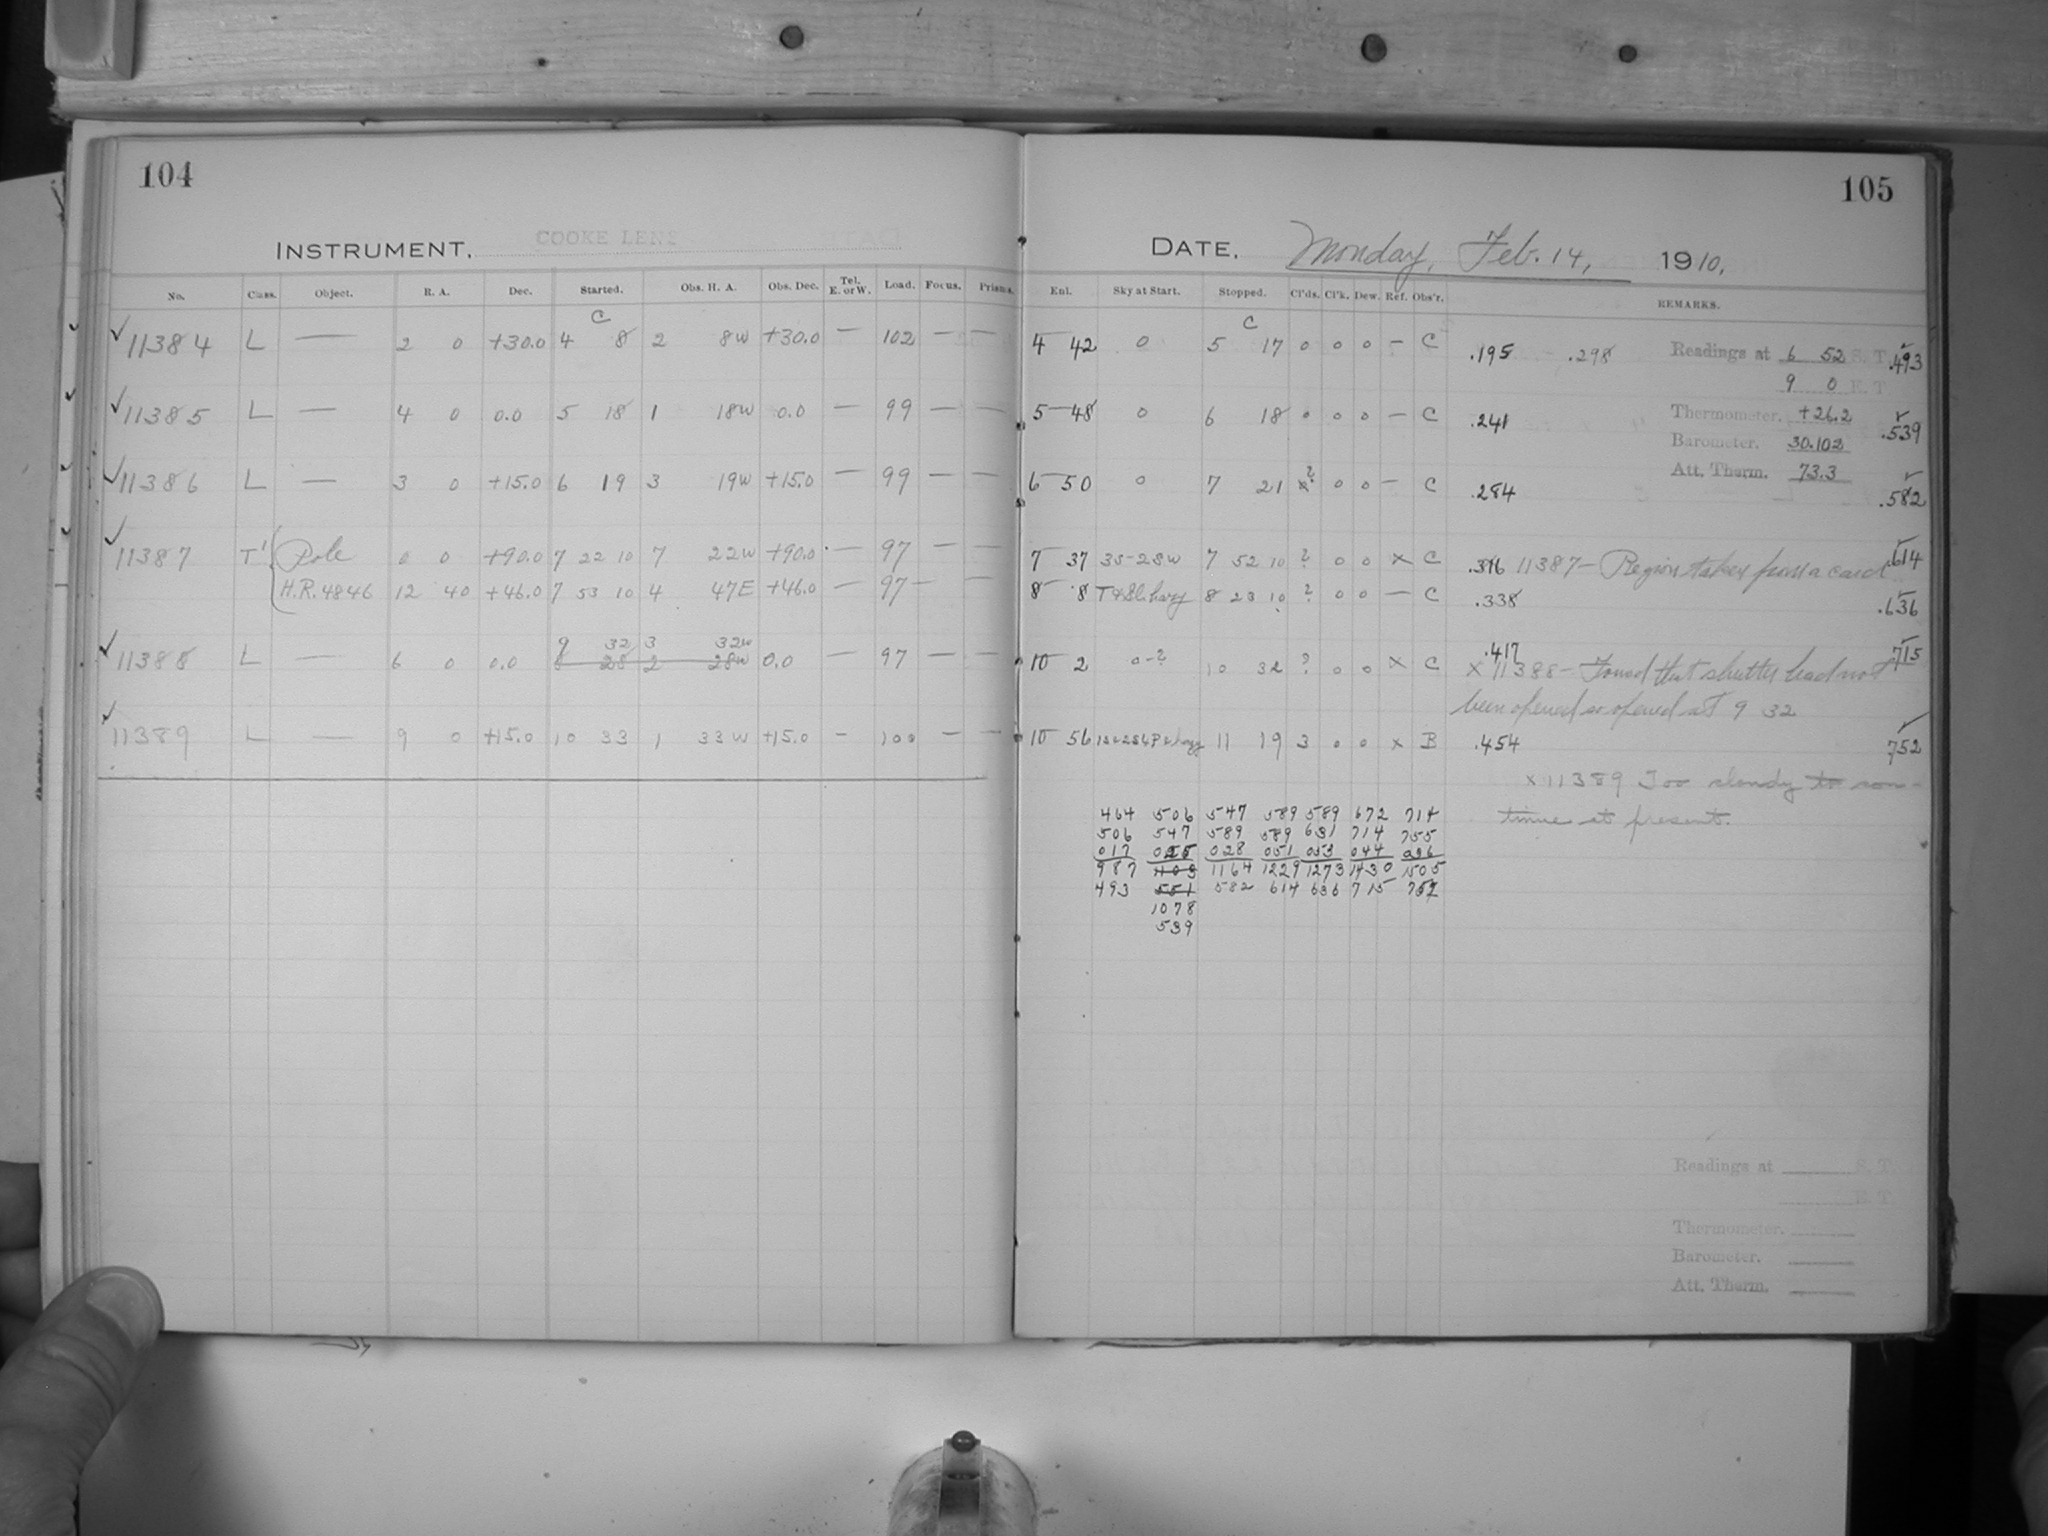 104
INSTRUMENT. COOKE LENS
No. Class. Object. R. A. Dec. Started. Obs. H. A. Obs. Dec. Tel. E. or W. Load. Focus. Prisms.
C
✓ 11384 L — 2 0 +30.0 4 8 2 8w +30.0 — 102 — —
✓ 11385 L — 4 0 0.0 5 18 1 18w 0.0 — 99 — —
✓ 11386 L — 3 0 +15.0 6 19 3 19w +15.0 — 99 — —
✓ 11387 T' Pole 0 0 +90.0 7 22 10 7 22w +90.0 — 97 — —
H.R. 4846 12 40 +46.0 7 53 10 4 47E +46.0 — 97 — —
9 32 3 32w
✓ 11388 L — 6 0 0.0 8 28 2 28w 0.0 — 97 — —
✓ 11389 L — 9 0 +15.0 10 33 1 33w +15.0 — 100 — —
105
DATE. Monday, Feb. 14, 1910.
Enl. Sky at Start. Stopped. Cl'ds. Cl'k. Dew. Ref. Obs'r. REMARKS.
C
4 42 0 5 17 0 0 0 — C .195 - .298 Readings at 6 52 S. T. .493
9 0 E. T.
5 48 0 6 18 0 0 0 — C .241 Thermometer. +26.2 .539
Barometer. 30.102
Att. Therm. 73.3
6 50 0 7 21 ? 0 0 — C .284 .582
7 37 35-28w 7 52 10 ? 0 0 x C .316 11387— Region taken from a card .614
8 8 8 23 10 ? 0 0 — C .338 .636
10 2 0-? 10 32 ? 0 0 x C .417 .715
x 11388— Found that shutter had not
been opened so opened at 9 32
10 56 11 19 3 0 0 x B .454 752
x 11389 Too cloudy to con-
tinue at present.
464 506 547 589 589 672 714
506 547 589 589 631 714 755
017 025 028 051 053 044 036
987 1103 1164 1229 1273 1430 1505
493 551 582 614 636 715 752
1078
539
Readings at S. T.
E. T.
Thermometer.
Barometer.
Att. Therm.